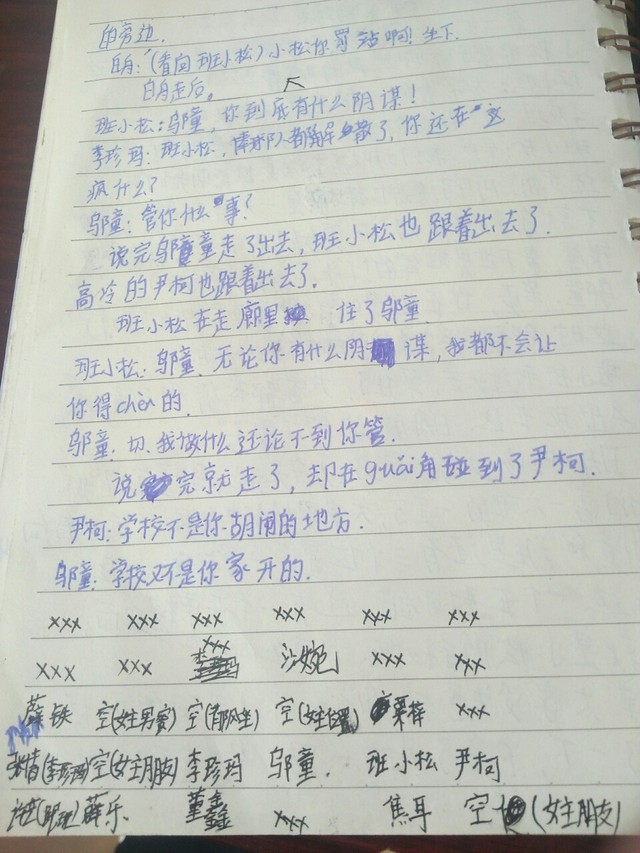 的旁边.
白舟:(看向班小松)小松你罚站啊!坐下.
白舟走后。
班小松:邬童,你到底有什么阴谋!
李珍玛:班小松,棒球队都解散了,你还在这
疯什么?
邬童:管你什么事?
说完邬童走了出去,班小松也跟着出去了.
高冷的尹柯也跟着出去了.
班小松在走廊里 住了邬童
班小松:邬童.无论你有什么阴谋,我都不会让
你得chèn的.
邬童:切.我做什么还论不到你管.
说完就走了,却在guǎi角碰到了尹柯.
尹柯:学校不是你胡闹的地方.
邬童:学校又不是你家开的.
××× ××× ××× ××× ××× ×××
××× ××× ××× 沙婉 ××× ×××
薛铁 空(女主男蜜) 空(郁风坐) 空(女主位置) 栗梓 ×××
(李珍玛) 空(女主朋友) 李珍玛 邬童. 班小松 尹柯
薛乐 董鑫 ××× 焦耳 空(女主朋友)